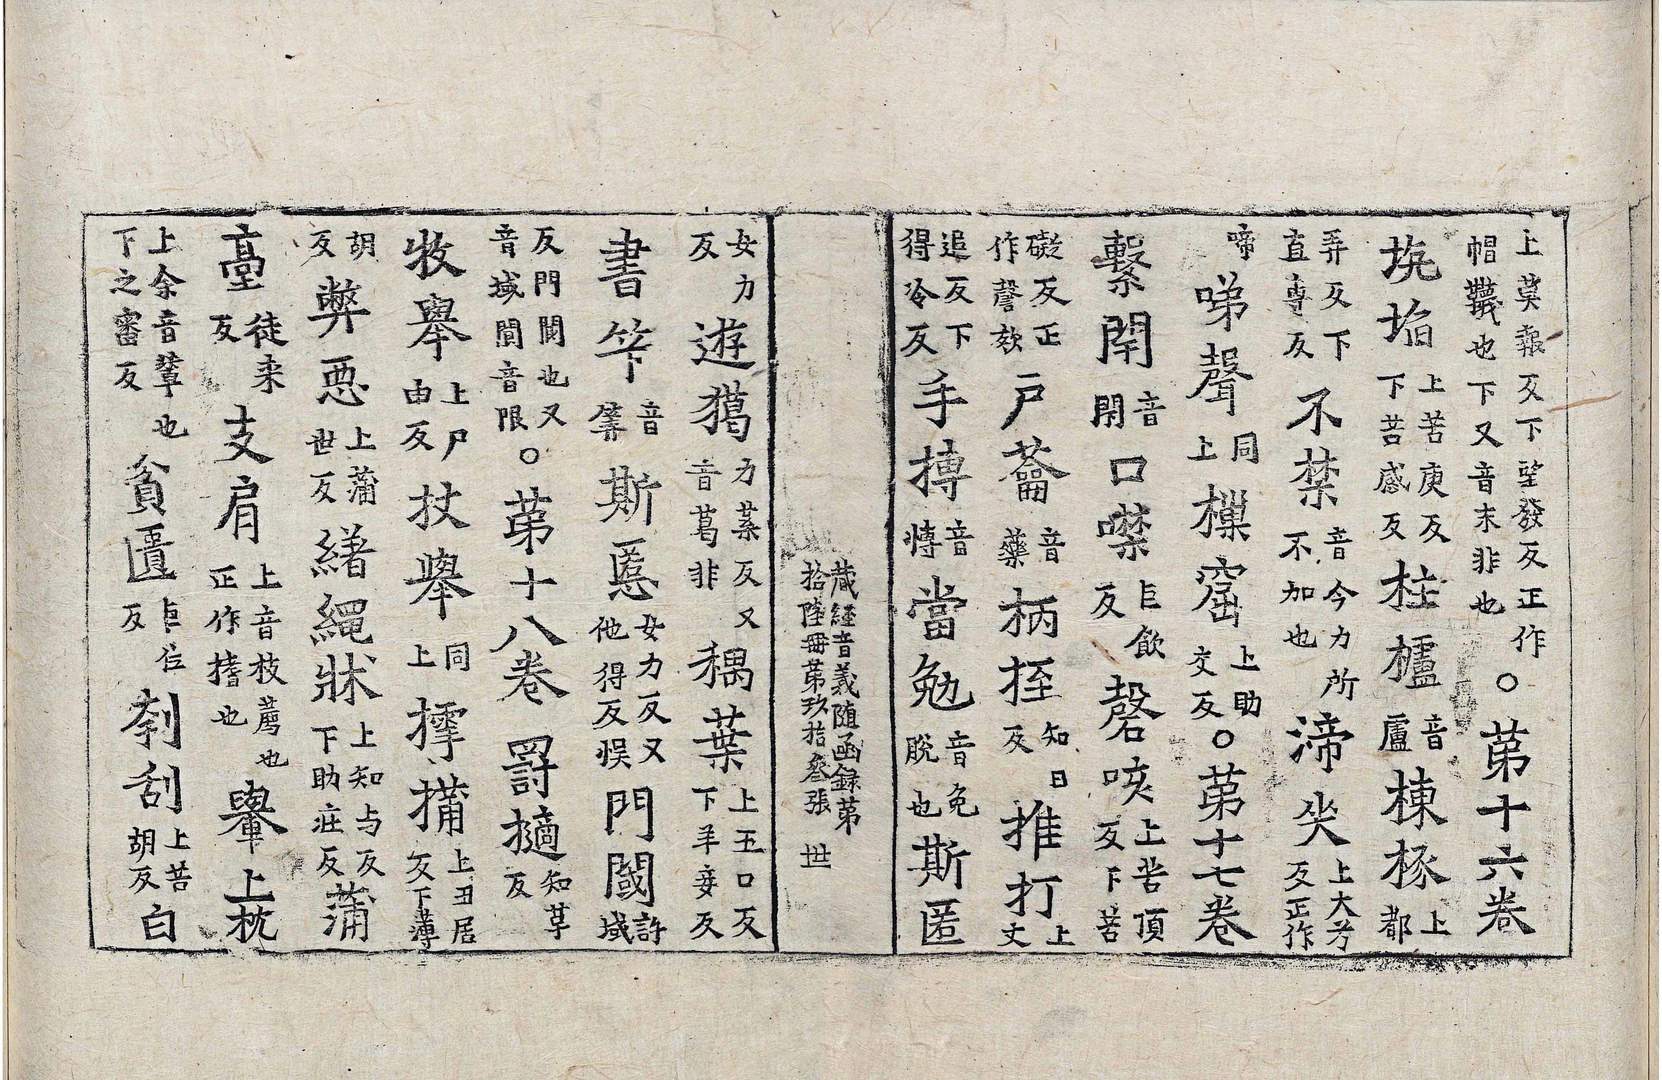 上莫報反下望發反正作帽韈也下又音末非也〇第十六卷
坑埳上苦庚反下苦感反柱櫨音盧棟椓上都
弄反下直專反不禁音今力所不加也渧㳄上大兮反正作
啼㗣聲同上樔窟上助交反〇第十七卷
繫閇音閉口噤巨飲反磬咳上苦頂反下苦
礙反正作謦欬戶蘥音藥柄挃知日反推打上
追反下得冷反手摶音慱當勉音免脫也斯匿
藏經音義随函録第拾陸冊第玖拾叄張 丗
女力反遊獦力葉反又音葛非耦葉上五口反下手妾反
書笇音筭斯慝女力反又他得反悞門閾許
域反門閫也又音域閫音限〇第十八卷 罸擿知革反
牧舉上尸由反杖舉同上摴蒱上丑居反下薄
胡反弊惡上蒲世反緖繩牀上知与反下助疘反蒲
臺徒来反支肩上音枝正作搘也轝上枕
上余音轝也下之審反貧匱巨位反刳刮上苦胡反白